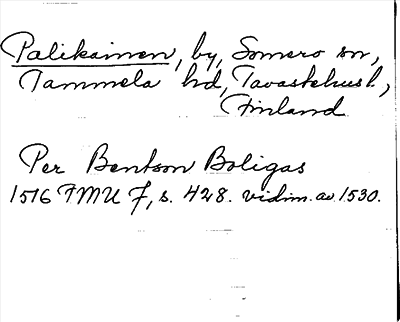 Palikainen, by, Somero sn,
Tammela hd, Tavastehusl.,
Finland
Per Bentson Boligas
1516 FMU 7, s. 428. vidim. av 1530.